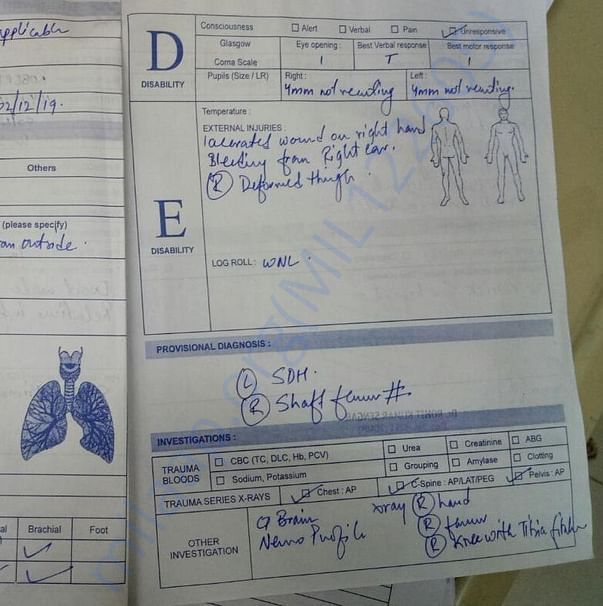 applicable
02/12/19.
Others
(please specify)
outside.
Brachial Foot
D
DISABILITY
Consciousness Alert Verbal Pain Unresponsive
Glasgow Eye opening : Best Verbal response Best motor response
Coma Scale 1 T 1
Pupils (Size / LR) Right : Left :
4mm not reacting 4mm not reacting.
E
DISABILITY
Temperature :
EXTERNAL INJURIES :
lacerated wound on right hand
Bleeding from Right ear.
(R) Deformed thigh.
LOG ROLL : WNL.
PROVISIONAL DIAGNOSIS :
(L) SDH.
(R) Shaft femur #.
INVESTIGATIONS :
TRAUMA BLOODS
CBC (TC, DLC, Hb, PCV) Urea Creatinine ABG
Sodium, Potassium Grouping Amylase Clotting
TRAUMA SERIES X-RAYS Chest : AP C-Spine : AP/LAT/PEG Pelvis : AP
OTHER INVESTIGATION
CT Brain
Xray (R) hand
(R) femur
(R) Knee with Tibia fibula